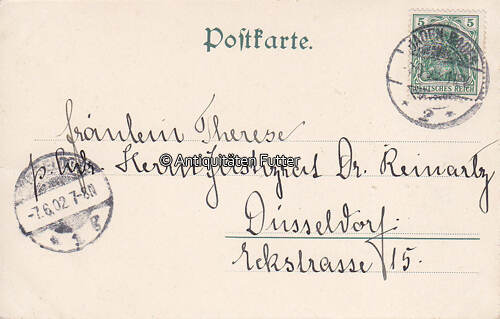 Postkarte.
5 5
DEUTSCHES REICH
BADEN-BADEN
* 2 *
Fräulein Therese
p. Adr. Herrn Justizrat Dr. Reinartz
© Antiquitäten Futter
-7.6.02 7-8N
* 1
Düsseldorf
Eckstrasse 15.